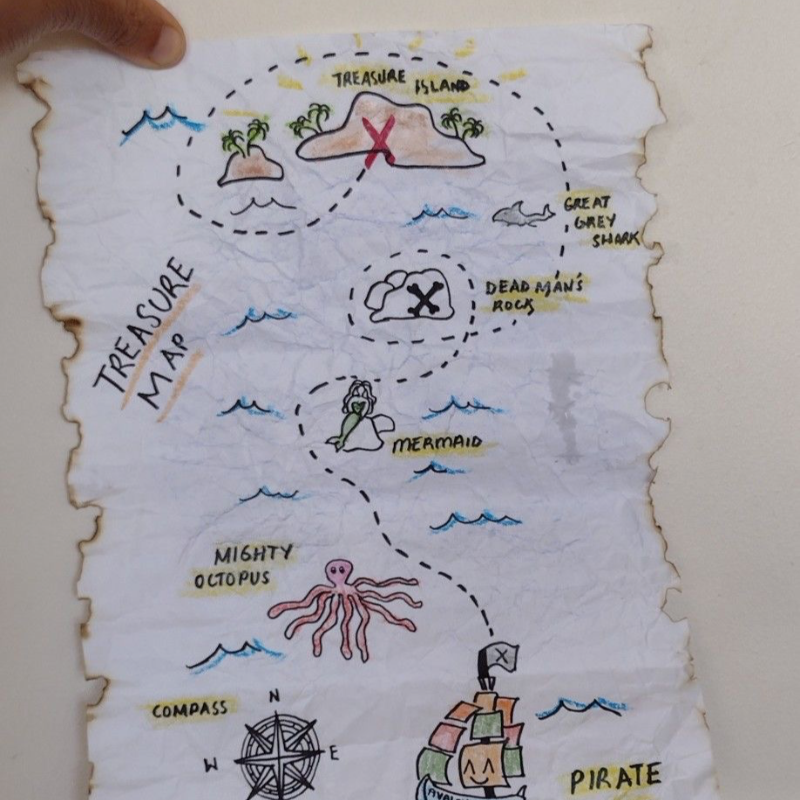 TREASURE ISLAND
GREAT
GREY
SHARK
DEAD MAN'S
ROCK
TREASURE
MAP
MERMAID
MIGHTY
OCTOPUS
COMPASS
N
W
E
PIRATE